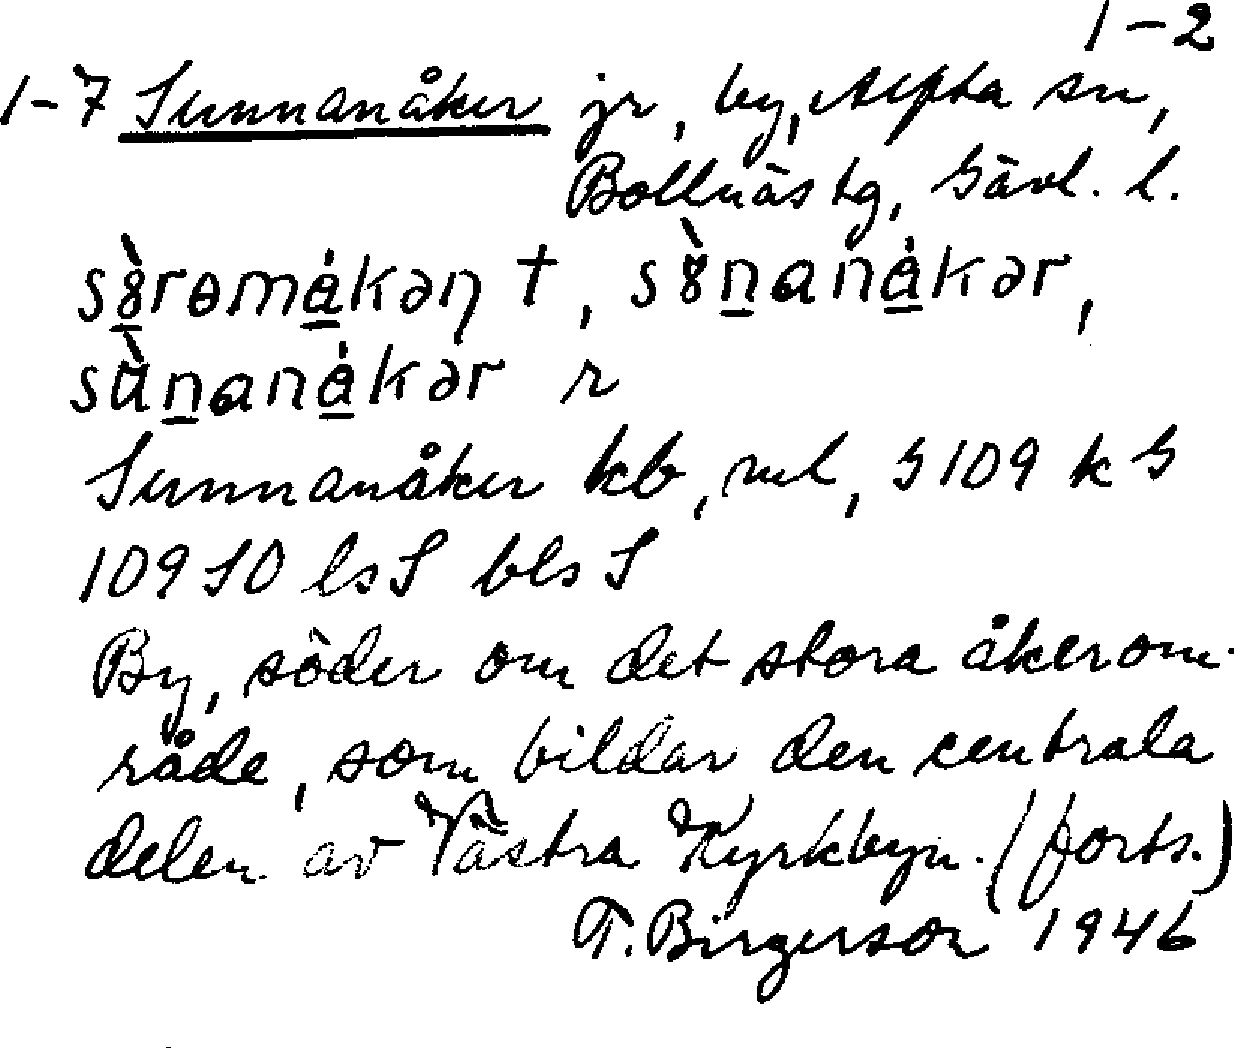 1-2
1-7 Sunnanåker jr, by, Alfta sn,
Bollnäs tg, Gävl. l.
sɣ̀rɵmákəꞃ †, sɣ̀nanákər,
sùnanákər r
Sunnanåker kb, ml, G109 k G
109 SO ls S bls S
By, söder om det stora åkerom-
råde, som bildar den centrala
delen av Västra Kyrkbyn. (forts.)
T. Birgerson 1946